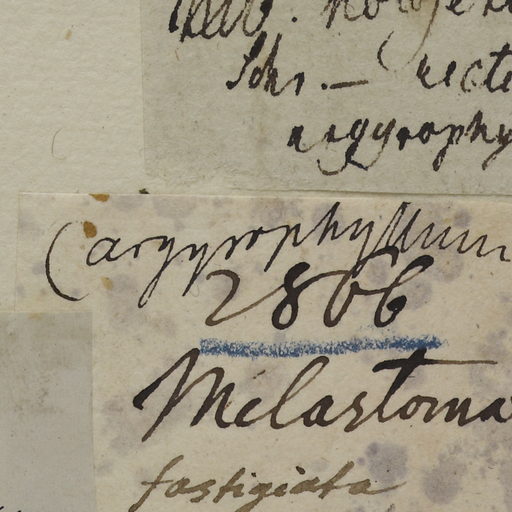 Schr. — recte
argyrophy
(argyrophyllum
2866
Melastoma
fastigiata